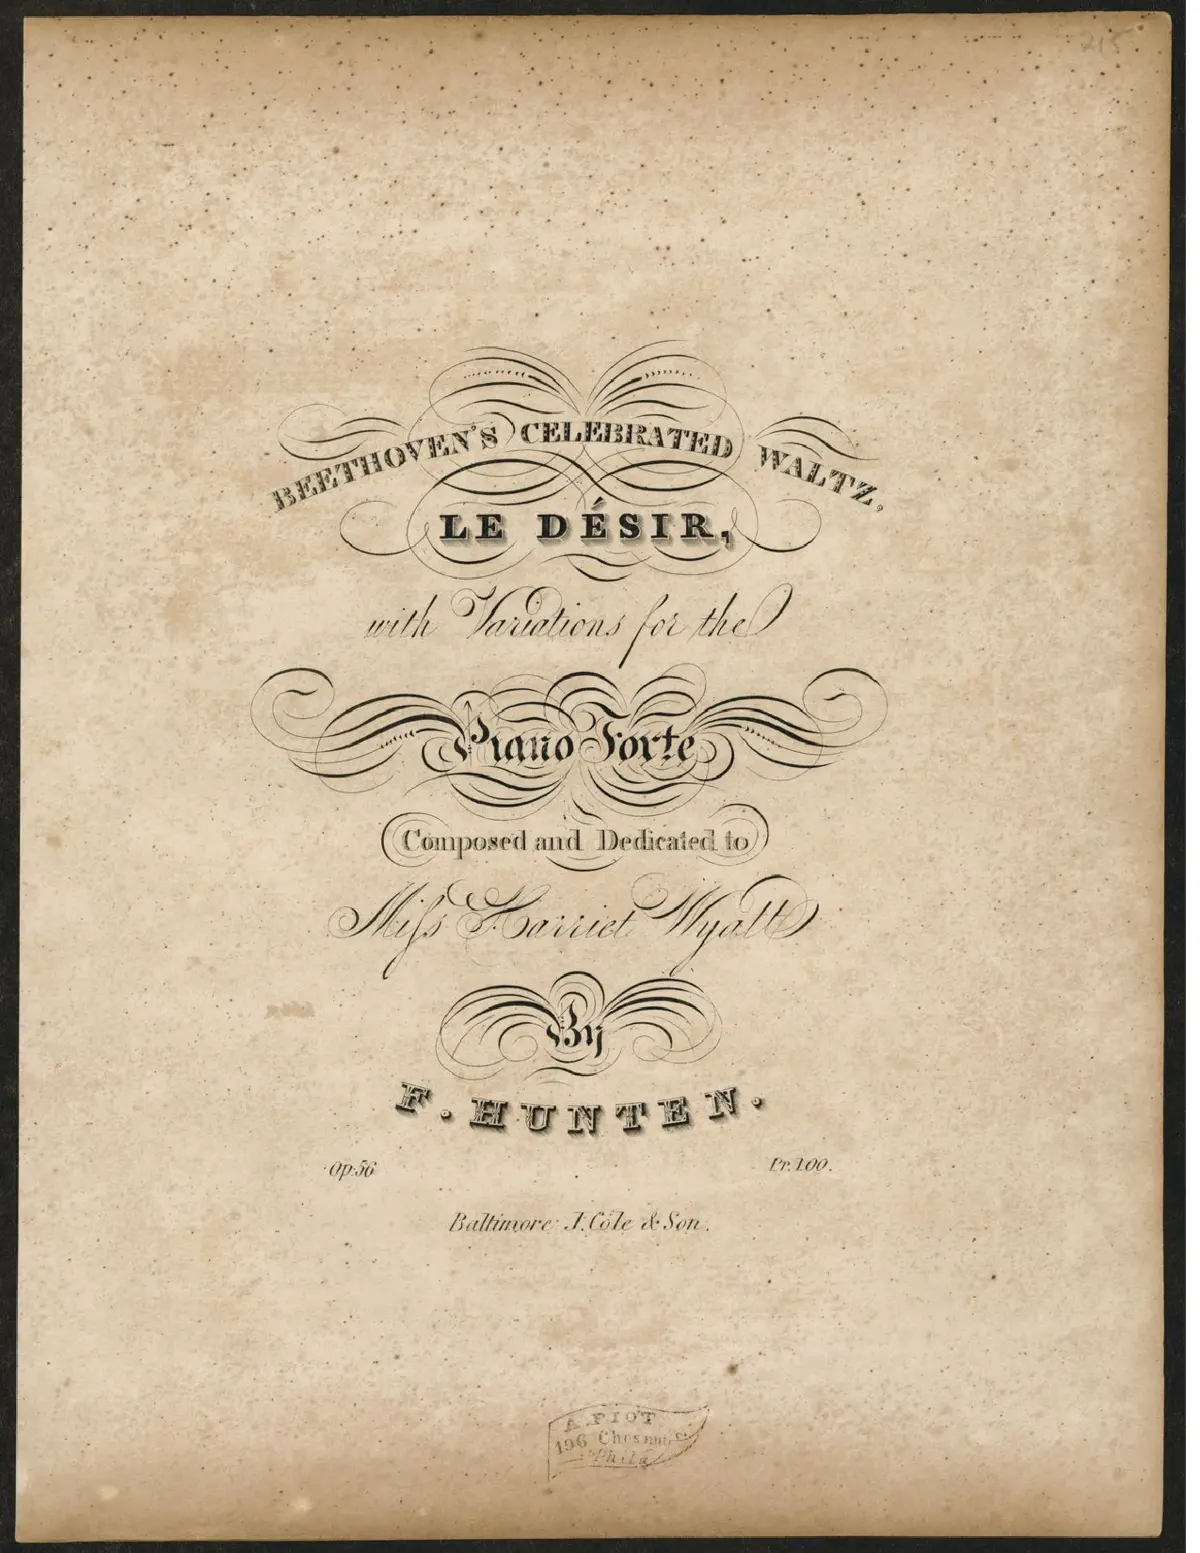 215
BEETHOVEN'S CELEBRATED WALTZ,
LE DÉSIR,
with Variations for the
Piano Forte
Composed and Dedicated to
Miſs Harriet Wyatt
By
F. HUNTEN.
Op.56 Pr.100.
Baltimore, J. Cole & Son.
A. PIOT
196 Chesnut
Phila